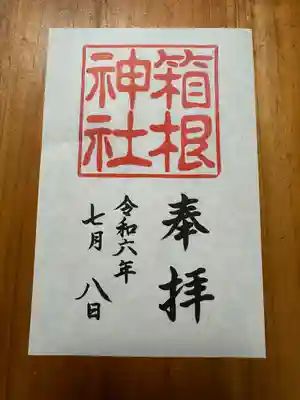 箱根
神社
奉拝
令和六年
七月八日